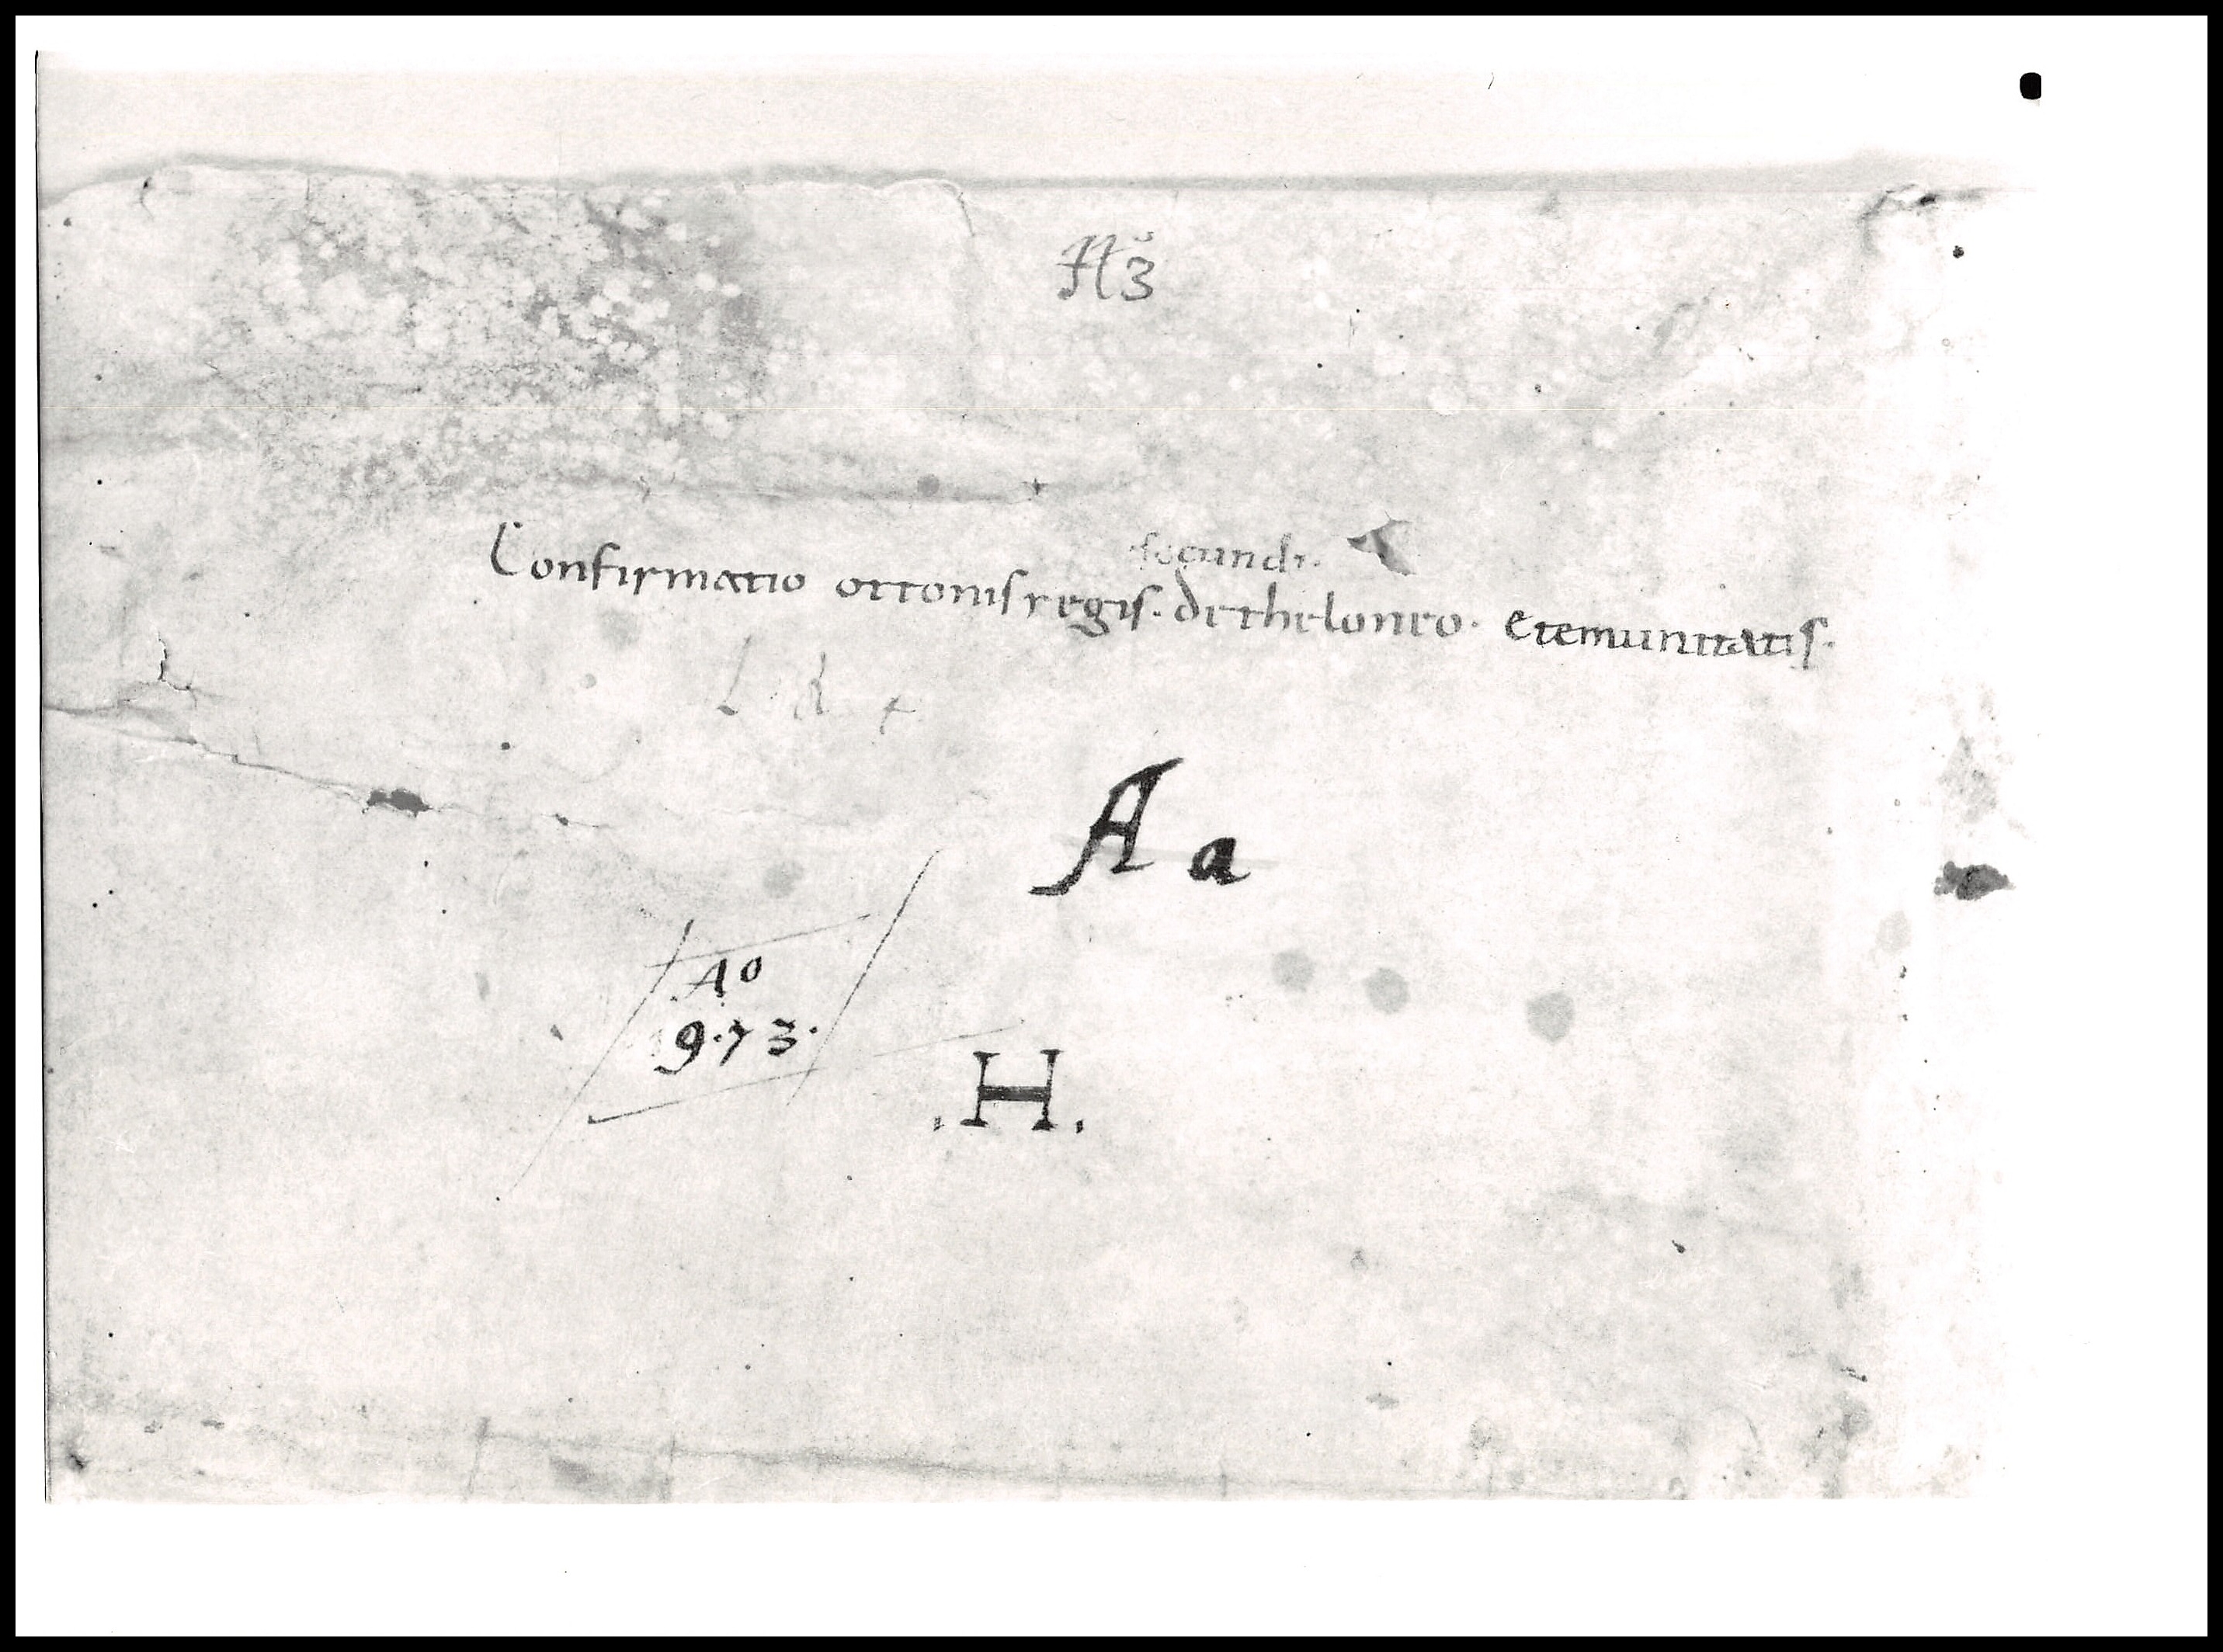 A3
secundi.
Confirmatio ottonis regis. de theloneo. et emunitatis.
A a
Aº
9.73.
.H.